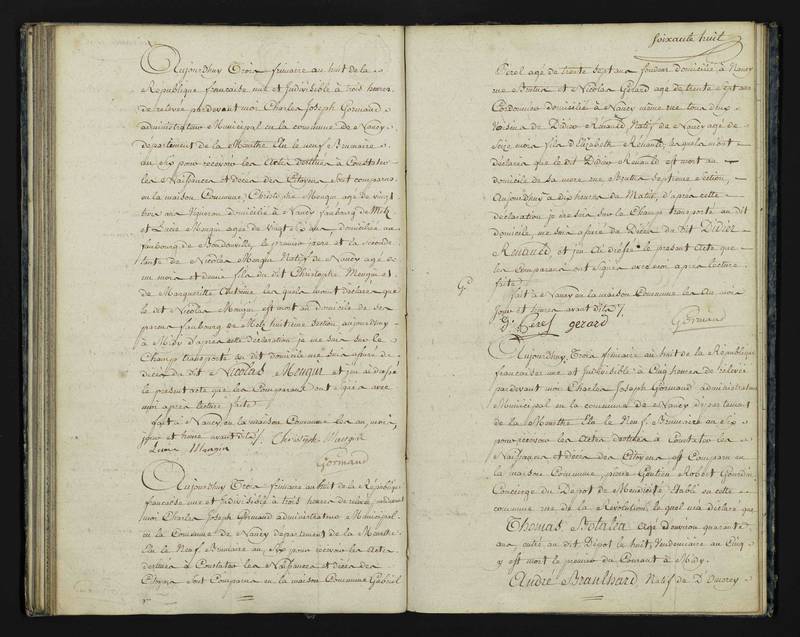 Aujourdhuy Trois frimaire an huit de la
Republique française une et Indivisible à trois heures
de relevée pardevant moi Charles Joseph Gormand
administrateur Municipal en la commune de Nancy
departement de la Meurthe Elu le neuf Brumaire
an six pour recevoir les actes destinés à Constater
les Naissances et décès des Citoyens sont comparus
en la maison Commune Christophe Mengin agé de vingt
trois ans Vigneron domicilié à Nancy faubourg de Metz
et Lucie Mengin agée de Vingt six ans, domiciliée au
faubourg de Boudonville, le premier pere et la seconde
tante de Nicolas Mengin Natif de Nancy agé de
un mois et demie fils du dit Christophe Mengin et
de Margueritte les quels m'ont déclaré que
le dit Nicolas Mengin est mort au domicile de ses
parens faubourg de Metz huitieme section, aujourdhuy
à Midy d'après cette déclaration je me suis sur le
Champ transporté au dit domicile me suis assuré du
décès du dit Nicolas Mengin et j'en ai dressé
le present acte que les Comparans ont signé avec
moi après lecture faite
fait à Nancy en la maison Commune les an, mois,
jour et heure avant dits /. Christoph Mangin
Lucie Mangin
Gormand
Aujourdhuy Trois frimaire an huit de la République
française une et Indivisible à trois heures de relevée, pardevant
moi Charles Joseph Gormand administrateur Municipal
en la Commune de Nancy departement de la Meurthe
Elu le Neuf Brumaire an Six pour recevoir les Actes
destinés à Constater les Naissances et décès des
Citoyens sont Comparus en la maison Commune Gabriel
soixante huit
Perel agé de trente sept ans fondeur domicilié à Nancy
rue Brutus et Nicolas Gérard agé de trente sept ans
Cordonnier domicilié à Nancy même rue tous deux
Voisins de Didier Renauld Natif de Nancy agé de
seize mois fils d'Elizabeth Renauld, les quels m'ont
déclaré que le dit Didier Renauld est mort au
domicile de sa mere rue Brutus Septieme Section,
Aujourdhuy à dix heures du Matin, d'après cette
déclaration je me suis sur le Champ transporté au dit
domicile, me suis assuré du Décès du dit Didier
Renauld et j'en ai dressé le présent Acte que
les Comparans ont signés avec moi après lecture
faite
fait à Nancy en la maison Commune les an mois
Jour et heures avant dits /.
G. Perel gerard Gormand
Aujourdhuy Trois frimaire an huit de la République
francaise une et Indivisible à Cinq heures de relevée
pardevant moi Charles Joseph Gormand administrateur
Municipal en la commune de Nancy departement
de la Meurthe Elu le Neuf Brumaire an Six
pour recevoir les Actes destinés à Constater les
Naissances et décès des Citoyens est Comparu en
la maison Commune, pierre Robert Gourdin
Concierge du Depot de Mendicité établi en cette
commune rue de la Révolution, le quel m'a déclaré que
Thomas Botalea agé d'environ quarante
ans, entré au dit Dépot le huit Vendemiaire an Cinq
y est mort le premier du Courant à Midy.
André Braulhard, Natif de